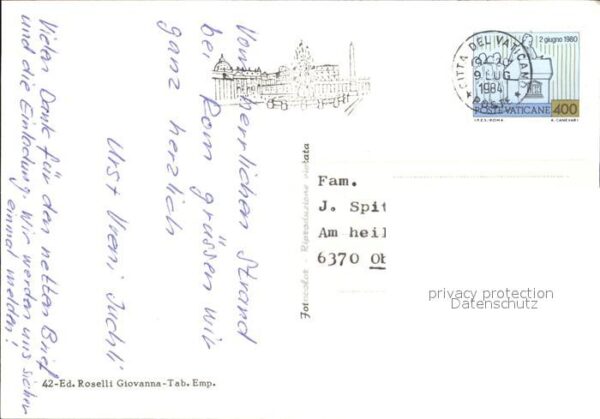 Vom herrlichen Strand
bei Rom grüssen wir
ganz herzlich
Urs + Vreni
Vielen Dank für den netten Brief
und die Einladung. Wir werden uns sicher
einmal melden!
42-Ed. Roselli Giovanna-Tab. Emp.
Fotocolor - Riproduzione vietata
CITTÀ DEL VATICANO
9 LUG
1984
POSTE
2 giugno 1980
POSTE VATICANE 400
I.P.Z.S. ROMA
A. CANEVARI
Fam.
J. Spit
Am heil
6370 Ob
privacy protection
Datenschutz